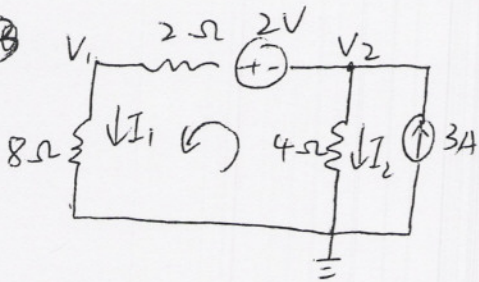 V₁ 2Ω 2V V₂
+ -
8Ω ↓I₁ 4Ω ↓I₂ ↑ 3A